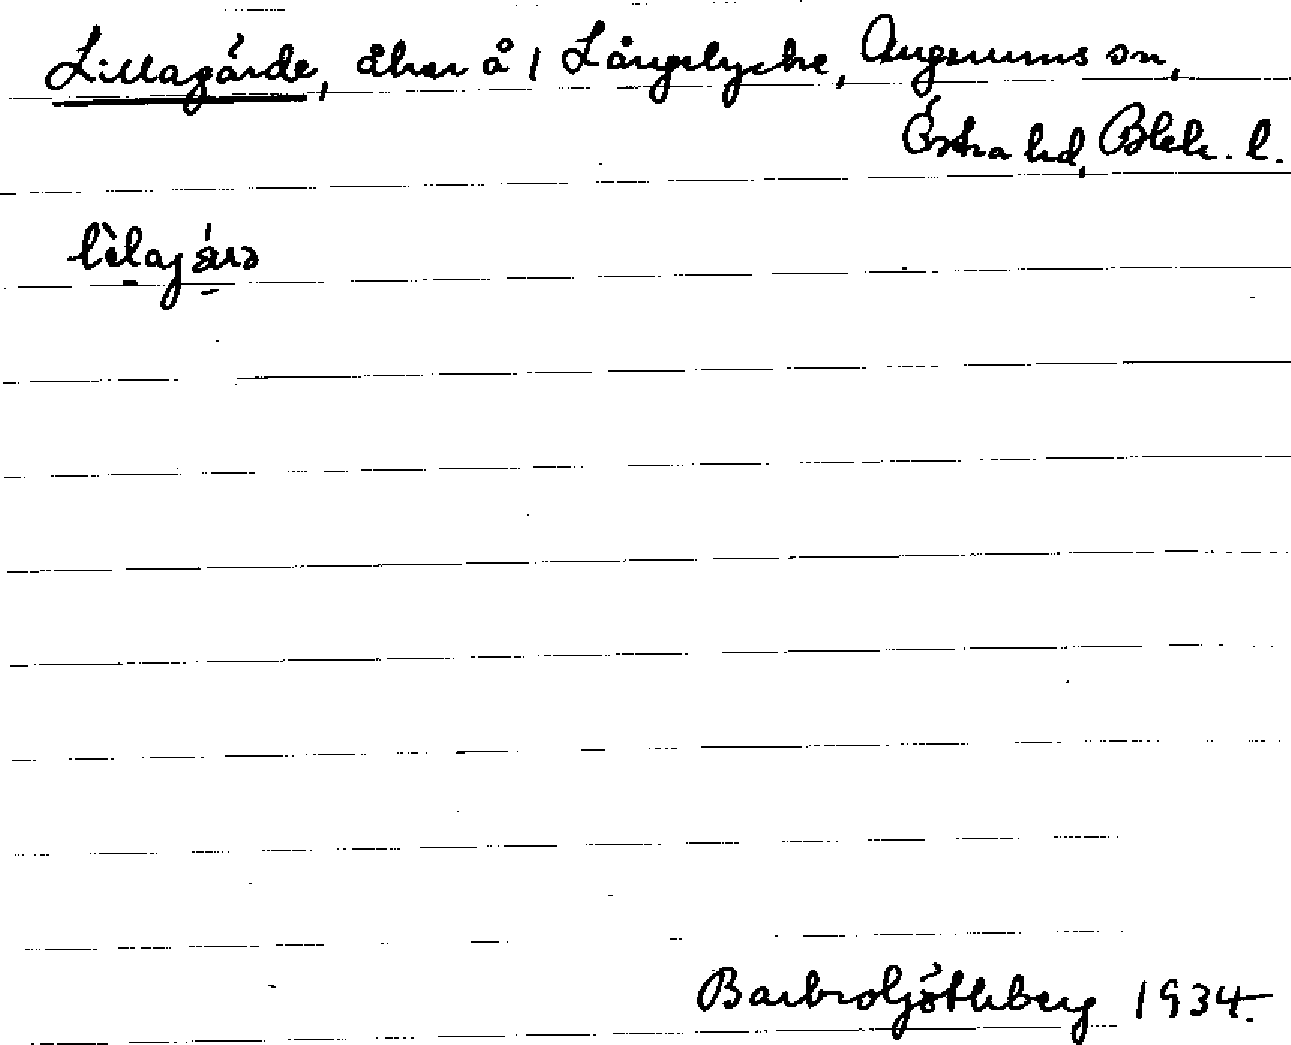 Lillagärde, åker å 1 Långelycke, Augerums sn,
Östra hd, Blek. l.
Barbro Götheberg 1934.